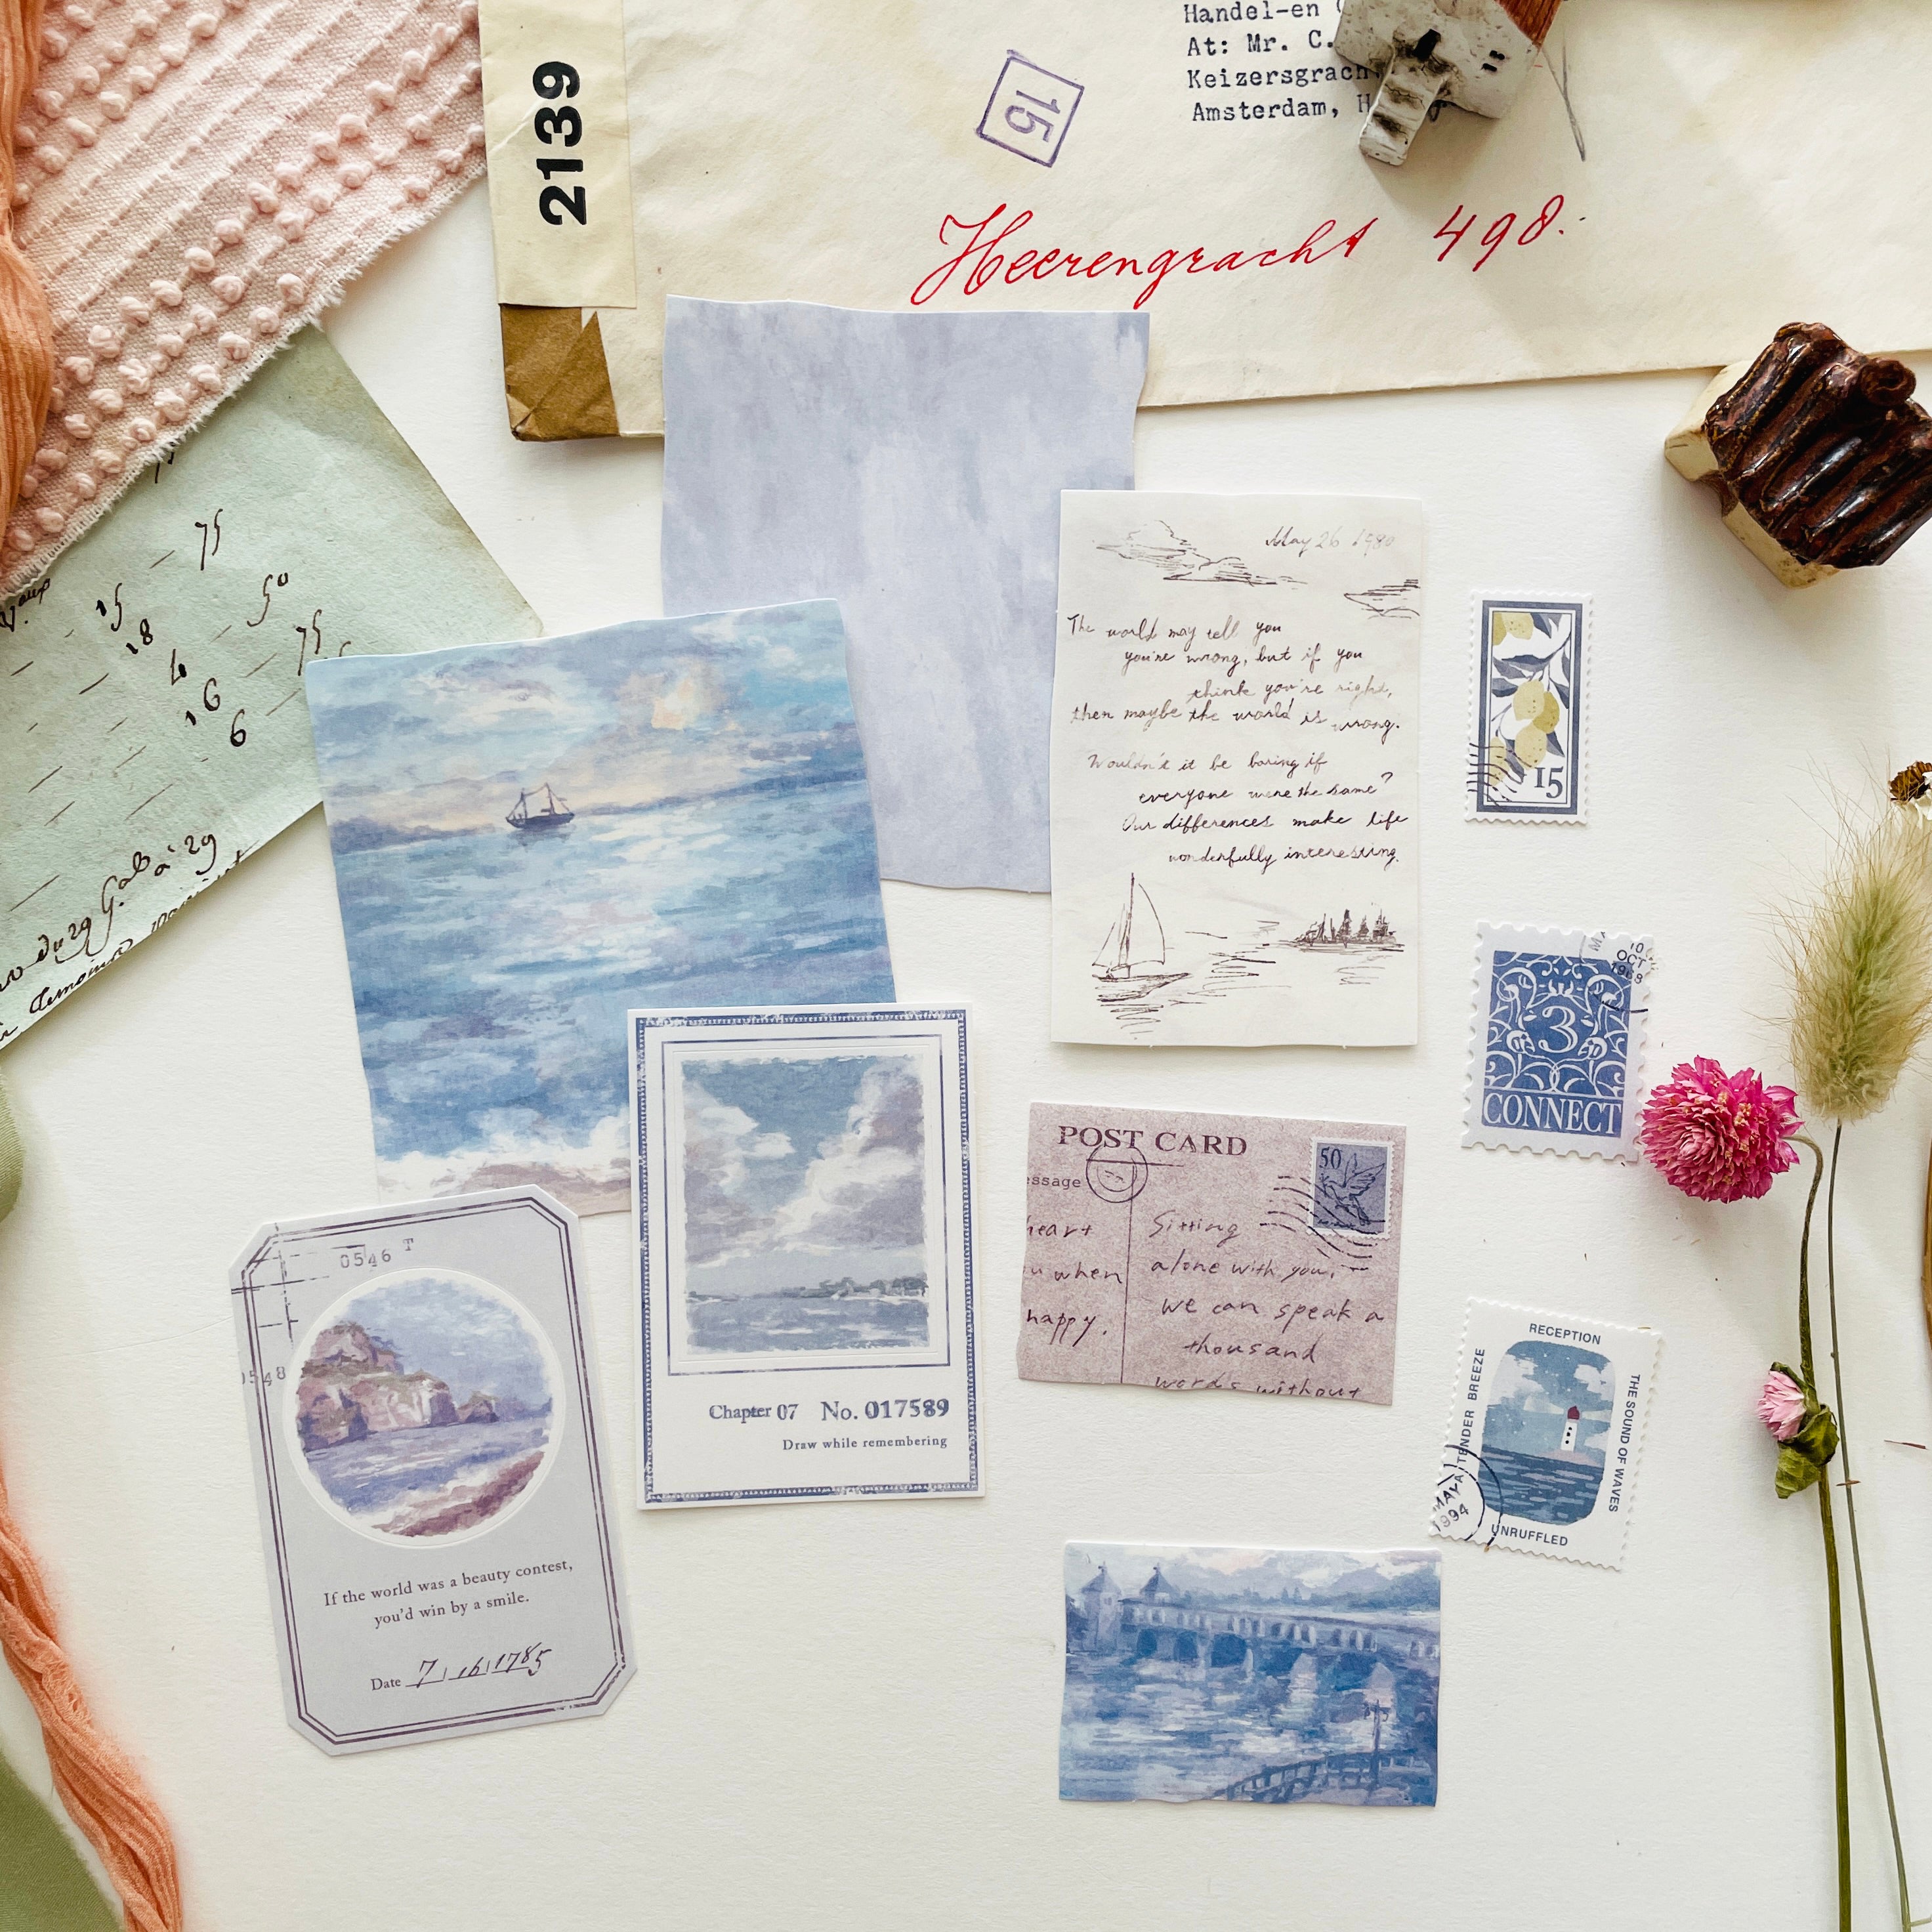 Handel-en
At: Mr. C.
Keizersgrach
Amsterdam, H
2139
15
Heerengracht 498.
75
15
50
18
75
4
16
6
May 26 1980
The world may tell you
you're wrong, but if you
think you're right,
then maybe the world is wrong.
Wouldn't it be boring if
everyone were the same?
Our differences make life
wonderfully interesting.
15
10
OCT
3
CONNECT
POST CARD
50
essage
heart
u when
happy.
Sitting
alone with you,
we can speak a
thousand
words without
RECEPTION
TENDER BREEZE
THE SOUND OF WAVES
UNRUFFLED
MAY
1994
Chapter 07 No. 017589
Draw while remembering
0546 T
0548
If the world was a beauty contest,
you'd win by a smile.
Date 7 16 1785